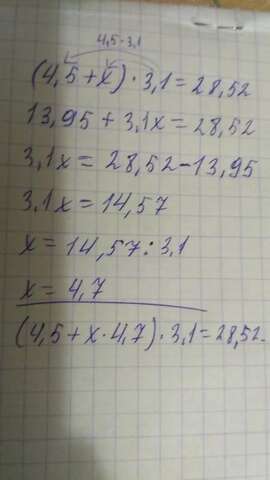 4,5·3,1
(4,5+x)·3,1=28,52
13,95+3,1x=28,52
3,1x=28,52-13,95
3,1x=14,57
x=14,57:3,1
x=4,7
(4,5+x·4,7)·3,1=28,52.